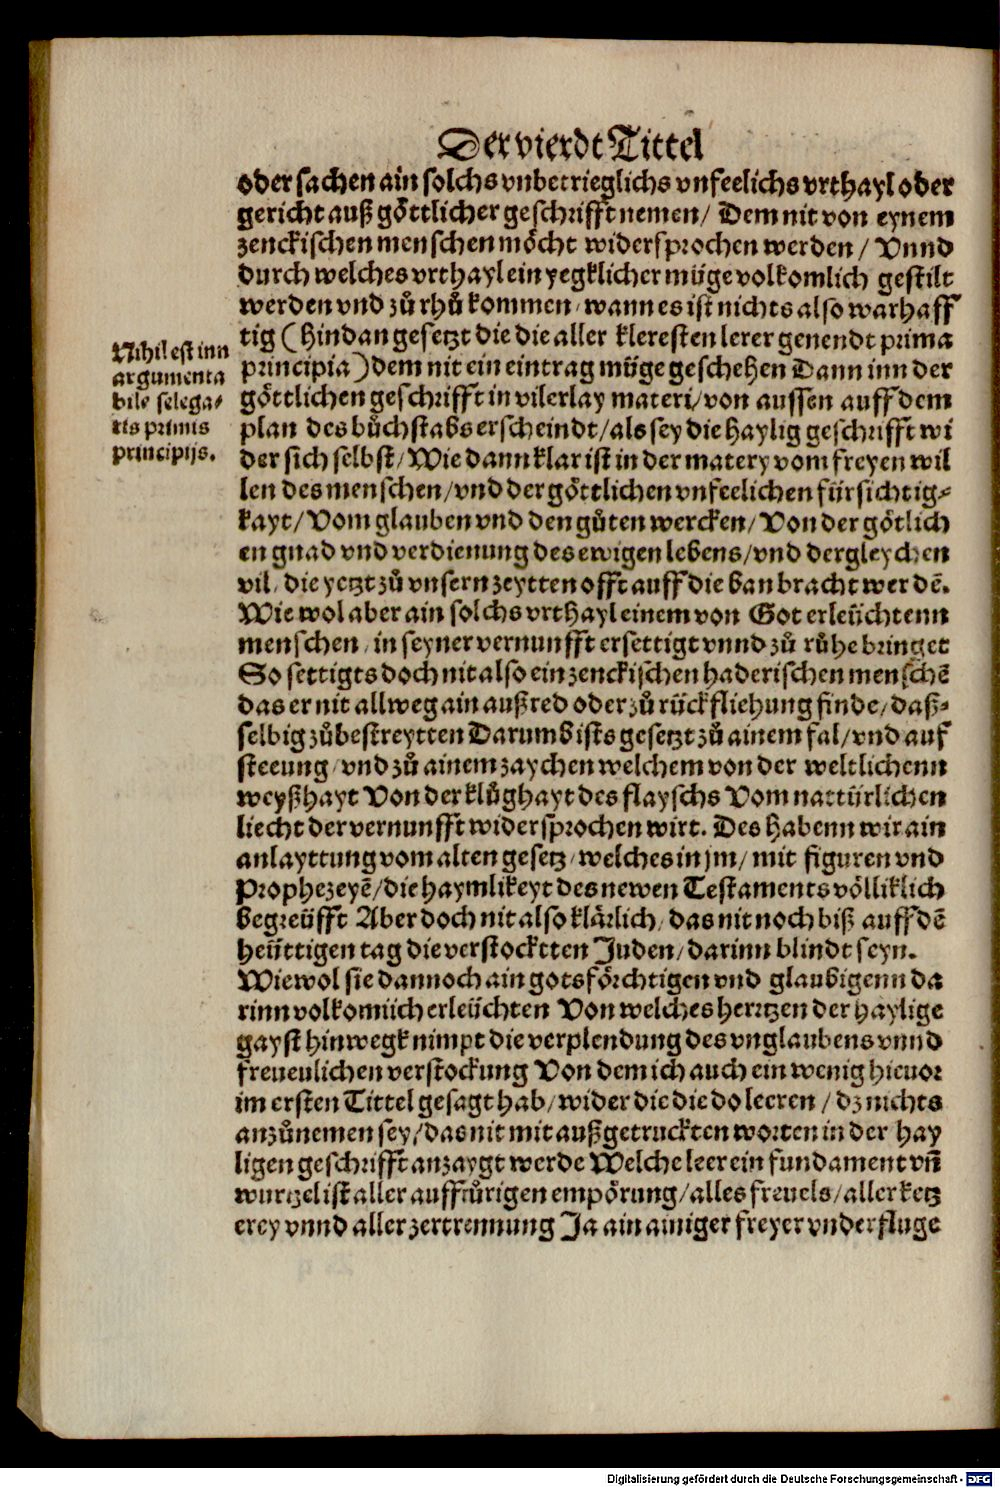 Der vierdt Tittel
oder sachen ain solchs vnbetrieglichs vnfeelichs vrthayl oder
gericht auß göttlicher geschrifft nemen/ Dem nit von eynem
zenckischen menschen möcht widersprochen werden/ Vnnd
durch welches vrthayl ein yegklicher müge volkomlich gestilt
werden vnd zů rhů kommen/ wann es ist nichts also warhaff
tig (hindan gesetzt die die aller kleresten lerer genendt prima
principia) dem nit ein eintrag müge geschehen Dann inn der
göttlichen geschrifft in vilerlay materi/ von aussen auff dem
plan des bůchstabs erscheindt/ als sey die haylig geschrifft wi
der sich selbst/ Wie dann klar ist in der matery vom freyen wil
len des menschen/ vnd der göttlichen vnfeelichen fürsichtig⸗
kayt/ Vom glauben vnd den gůten wercken/ Von der götlich
en gnad vnd verdienung des ewigen lebens/ vnd dergleychen
vil/ die yetzt zů vnsern zeytten offt auff die ban bracht werdē.
Wie wol aber ain solchs vrthayl einem von Got erleüchtenn
menschen/ in seyner vernunfft ersettigt vnnd zů růhe bringet
So settigts doch nit also ein zenckischen haderischen menschē
das er nit allweg ain außred oder zů rückfliehung finde/ daß⸗
selbig zůbestreytten Darumb ists gesetzt zů ainem fal/ vnd auf
steeung/ vnd zů ainem zaychen welchem von der weltlichenn
weyßhayt Von der klůghayt des flayschs Vom nattürlichen
liecht der vernunfft widersprochen wirt. Des habenn wir ain
anlayttung vom alten gesetz/ welches in jm/ mit figuren vnd
Prophezeyē/ die haymlikeyt des newen Testaments völliklich
begreüfft Aber doch nit also klärlich/ das nit noch biß auff dē
heüttigen tag die verstockten Juden/ darinn blindt seyn.
Wiewol sie dannoch ain gotsförchtigen vnd glaubigenn da
rinn volkomlich erleüchten Von welches hertzen der haylige
gayst hinwegk nimpt die verplendung des vnglaubens vnnd
freuenlichen verstockung Von dem ich auch ein wenig hieuor
im ersten Tittel gesagt hab/ wider die die do leeren/ dz nichts
anzůnemen sey/ das nit mit außgetruckten worten in der hay
ligen geschrifft anzaygt werde Welche leer ein fundament vñ
wurtzel ist aller auffrürigen empörung/ alles freuels/ aller ketz
erey vnnd aller zertrennung Ja ain ainiger freyer vnderfluge
Nihil est inn
argumenta
bile selega⸗
tis primis
principijs.
Digitalisierung gefördert durch die Deutsche Forschungsgemeinschaft - DFG